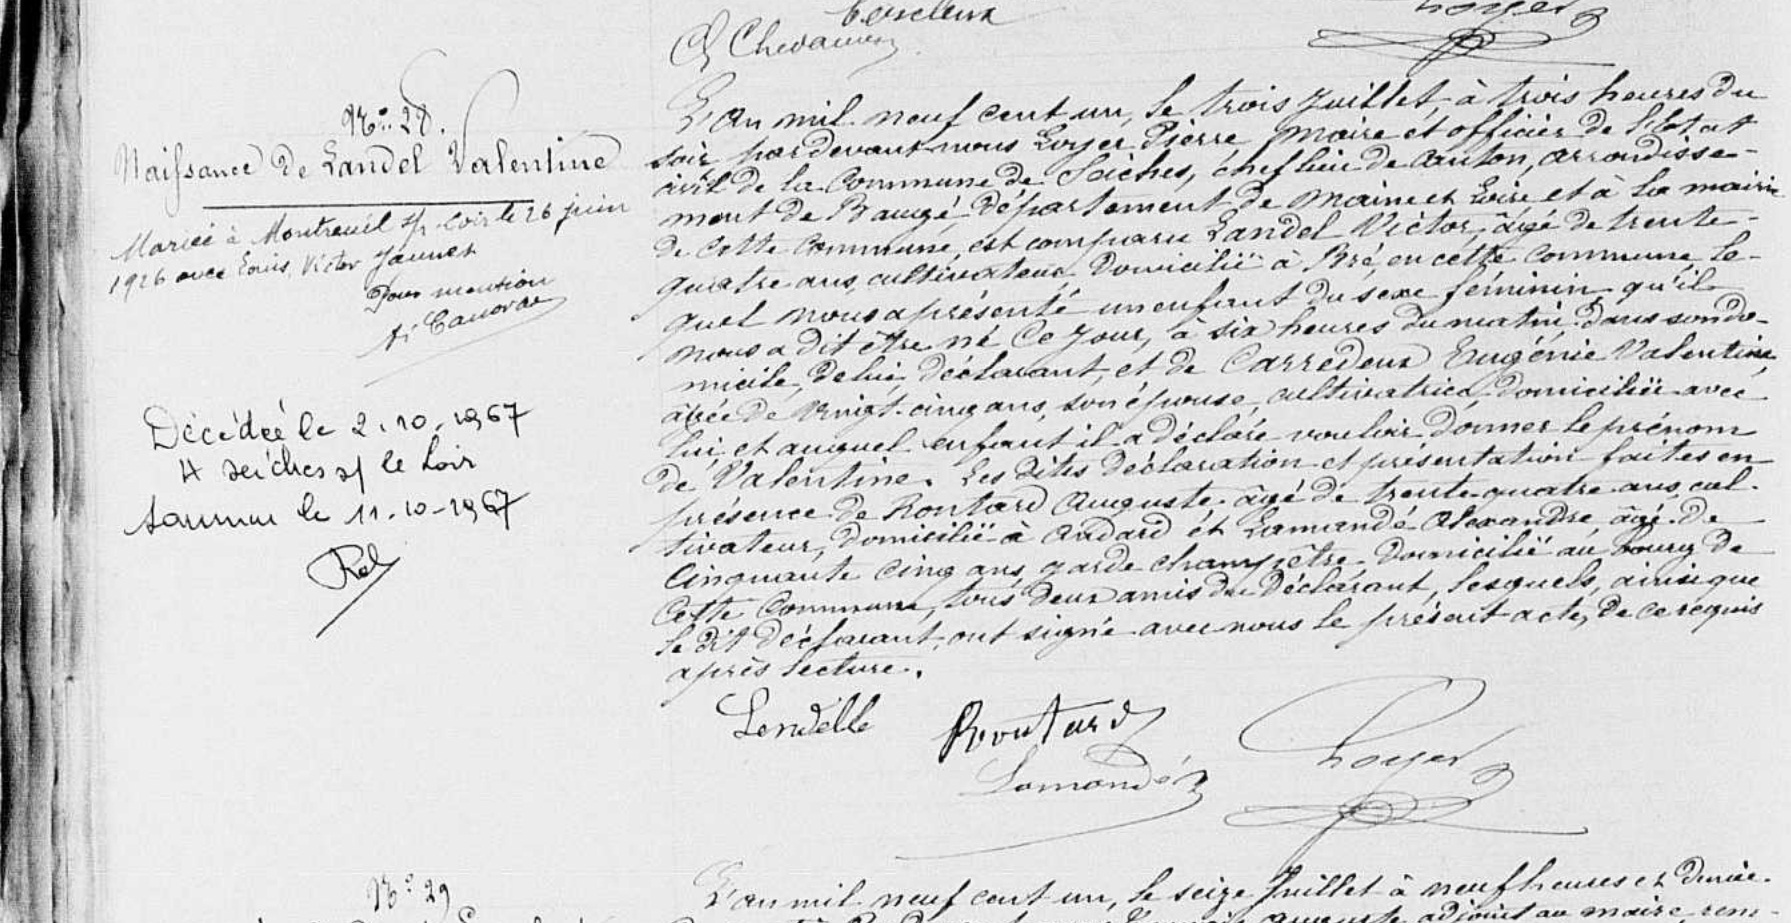 Chevaurer
No. 28.
Naissance de Landel Valentine
Mariée à Montreuil s/r Loir le 26 juin
1926 avec Louis, Victor Jaunet
Pour mention
Décédée le 2.10.1967
à seiches s/ le Loir
le 11-10-1967
L'an mil neuf cent un, le trois Juillet, à trois heures du
soir par devant nous Loyer Pierre, Maire et officier de l'Etat
civil de la Commune de Seiches, chef lieu de Canton, arrondisse-
ment de Baugé, département de Maine et Loire et à la mairie
de cette commune, est comparu Landel Victor, âgé de trente-
quatre ans, cultivateur, domicilié à Pré, en cette commune, le-
quel nous a présenté un enfant du sexe féminin qu'il
nous a dit être né ce jour, à six heures du matin dans son do-
micile, de lui déclarant, et de Carredeux Eugénie Valentine,
âgée de vingt-cinq ans, son épouse, cultivatrice, domiciliée avec
lui, et auquel enfant il a déclaré vouloir donner le prénom
de Valentine. Les dites déclaration et présentation faites en
présence de Rontard Auguste, âgé de trente-quatre ans, cul-
tivateur, domicilié à Andard et Lamandé Alexandre, âgé de
cinquante cinq ans, garde champêtre, domicilié au bourg de
cette commune, tous deux amis du déclarant, lesquels, ainsi que
le dit déclarant, ont signé avec nous le présent acte, de ce requis
après lecture.
Lendelle Rontard
Lamandé Loyer
No. 29
L'an mil neuf cent un, le seize Juillet à neuf heures et demie
adjoint au maire rem